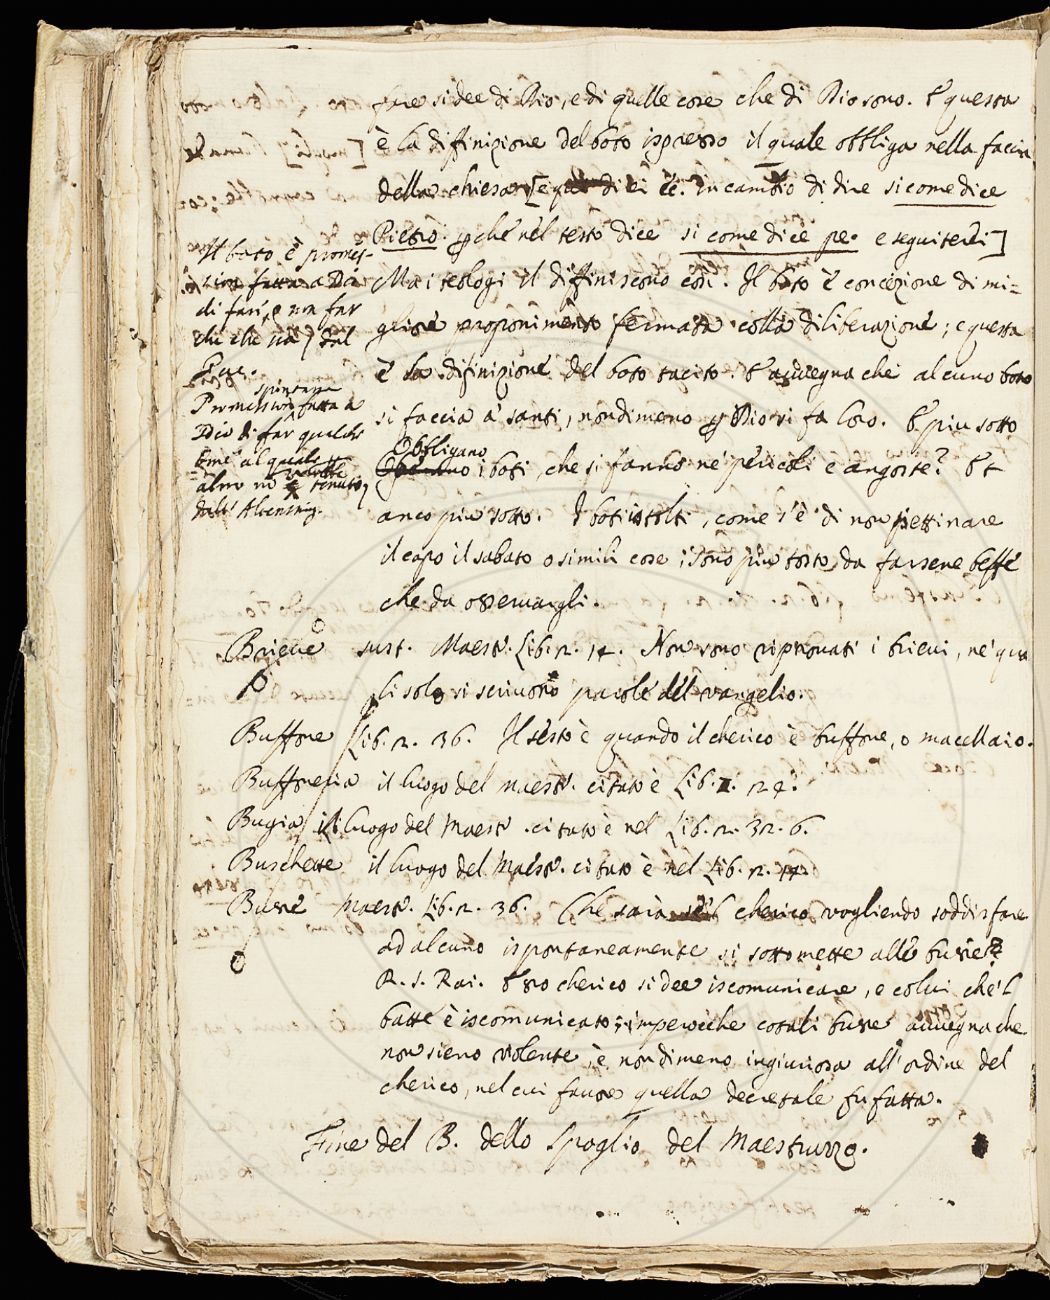 fare si dee di Dio, e di quelle cose che di Dio sono. E questa
è la diffinizione del boto ispresso il quale obbliga nella faccia
della chiesa [e qui di ei è. in cambio di dire si come dice
Pietro. pché nel testo dice si come dice pe. e seguiterei]
Ma i teologi il diffiniscono così. Il boto è concezione di mi=
gliore proponimento fermata colla diliberazione; e questa
è la difinizione del boto tacito. E avvegna che alcuno boto
si faccia a' santi, nondimeno p Dio si fa loro. E piu sotto
Obbligano
i boti, che si fanno ne' pericoli e angoste? E t
anco piu sotto. I boti istolti, come s'è di non pettinare
il capo il sabato o simili cose; sono piu tosto da farsene beffe
che da osservargli.
Il boto è promes-
sione fatta a Dio
di fare, e non far
che che sia, dal
Buc.
spintanea
Promissione fatta a
Dio di far qualche
bene al quale p
altro no è tenuto,
dall' Albensing.
Brieve sust. Maest. Lib. 2. 14. Non sono riprovati i brievi, ne' qua
li solo si scrivono parole del vangelio.
Buffone Lib. 2. 36. Il sesto è quando il cherico è buffone, o macellaio.
Buffoneria il luogo del maest. citato è Lib. 2. 24.
Bugia il luogo del Maest. citato è nel Lib. 2. 32. 6.
Buschette il luogo del Maest. citato è nel Lib. 2. 14.
Busse Maest. Lib. 2. 36. Che sarà se'l cherico vogliendo soddisfare
ad alcuno ispontaneamente si sottomette alle busse?
R. S. Rai. Esso cherico si dee iscomunicare, e colui che'l
batte è iscomunicato; imperocche cotali busse avvegna che
non sieno violente, è nondimeno ingiuriosa all'ordine del
cherico, nel cui favore quella decretale fu fatta.
Fine del B. dello Spoglio del Maestruzzo.